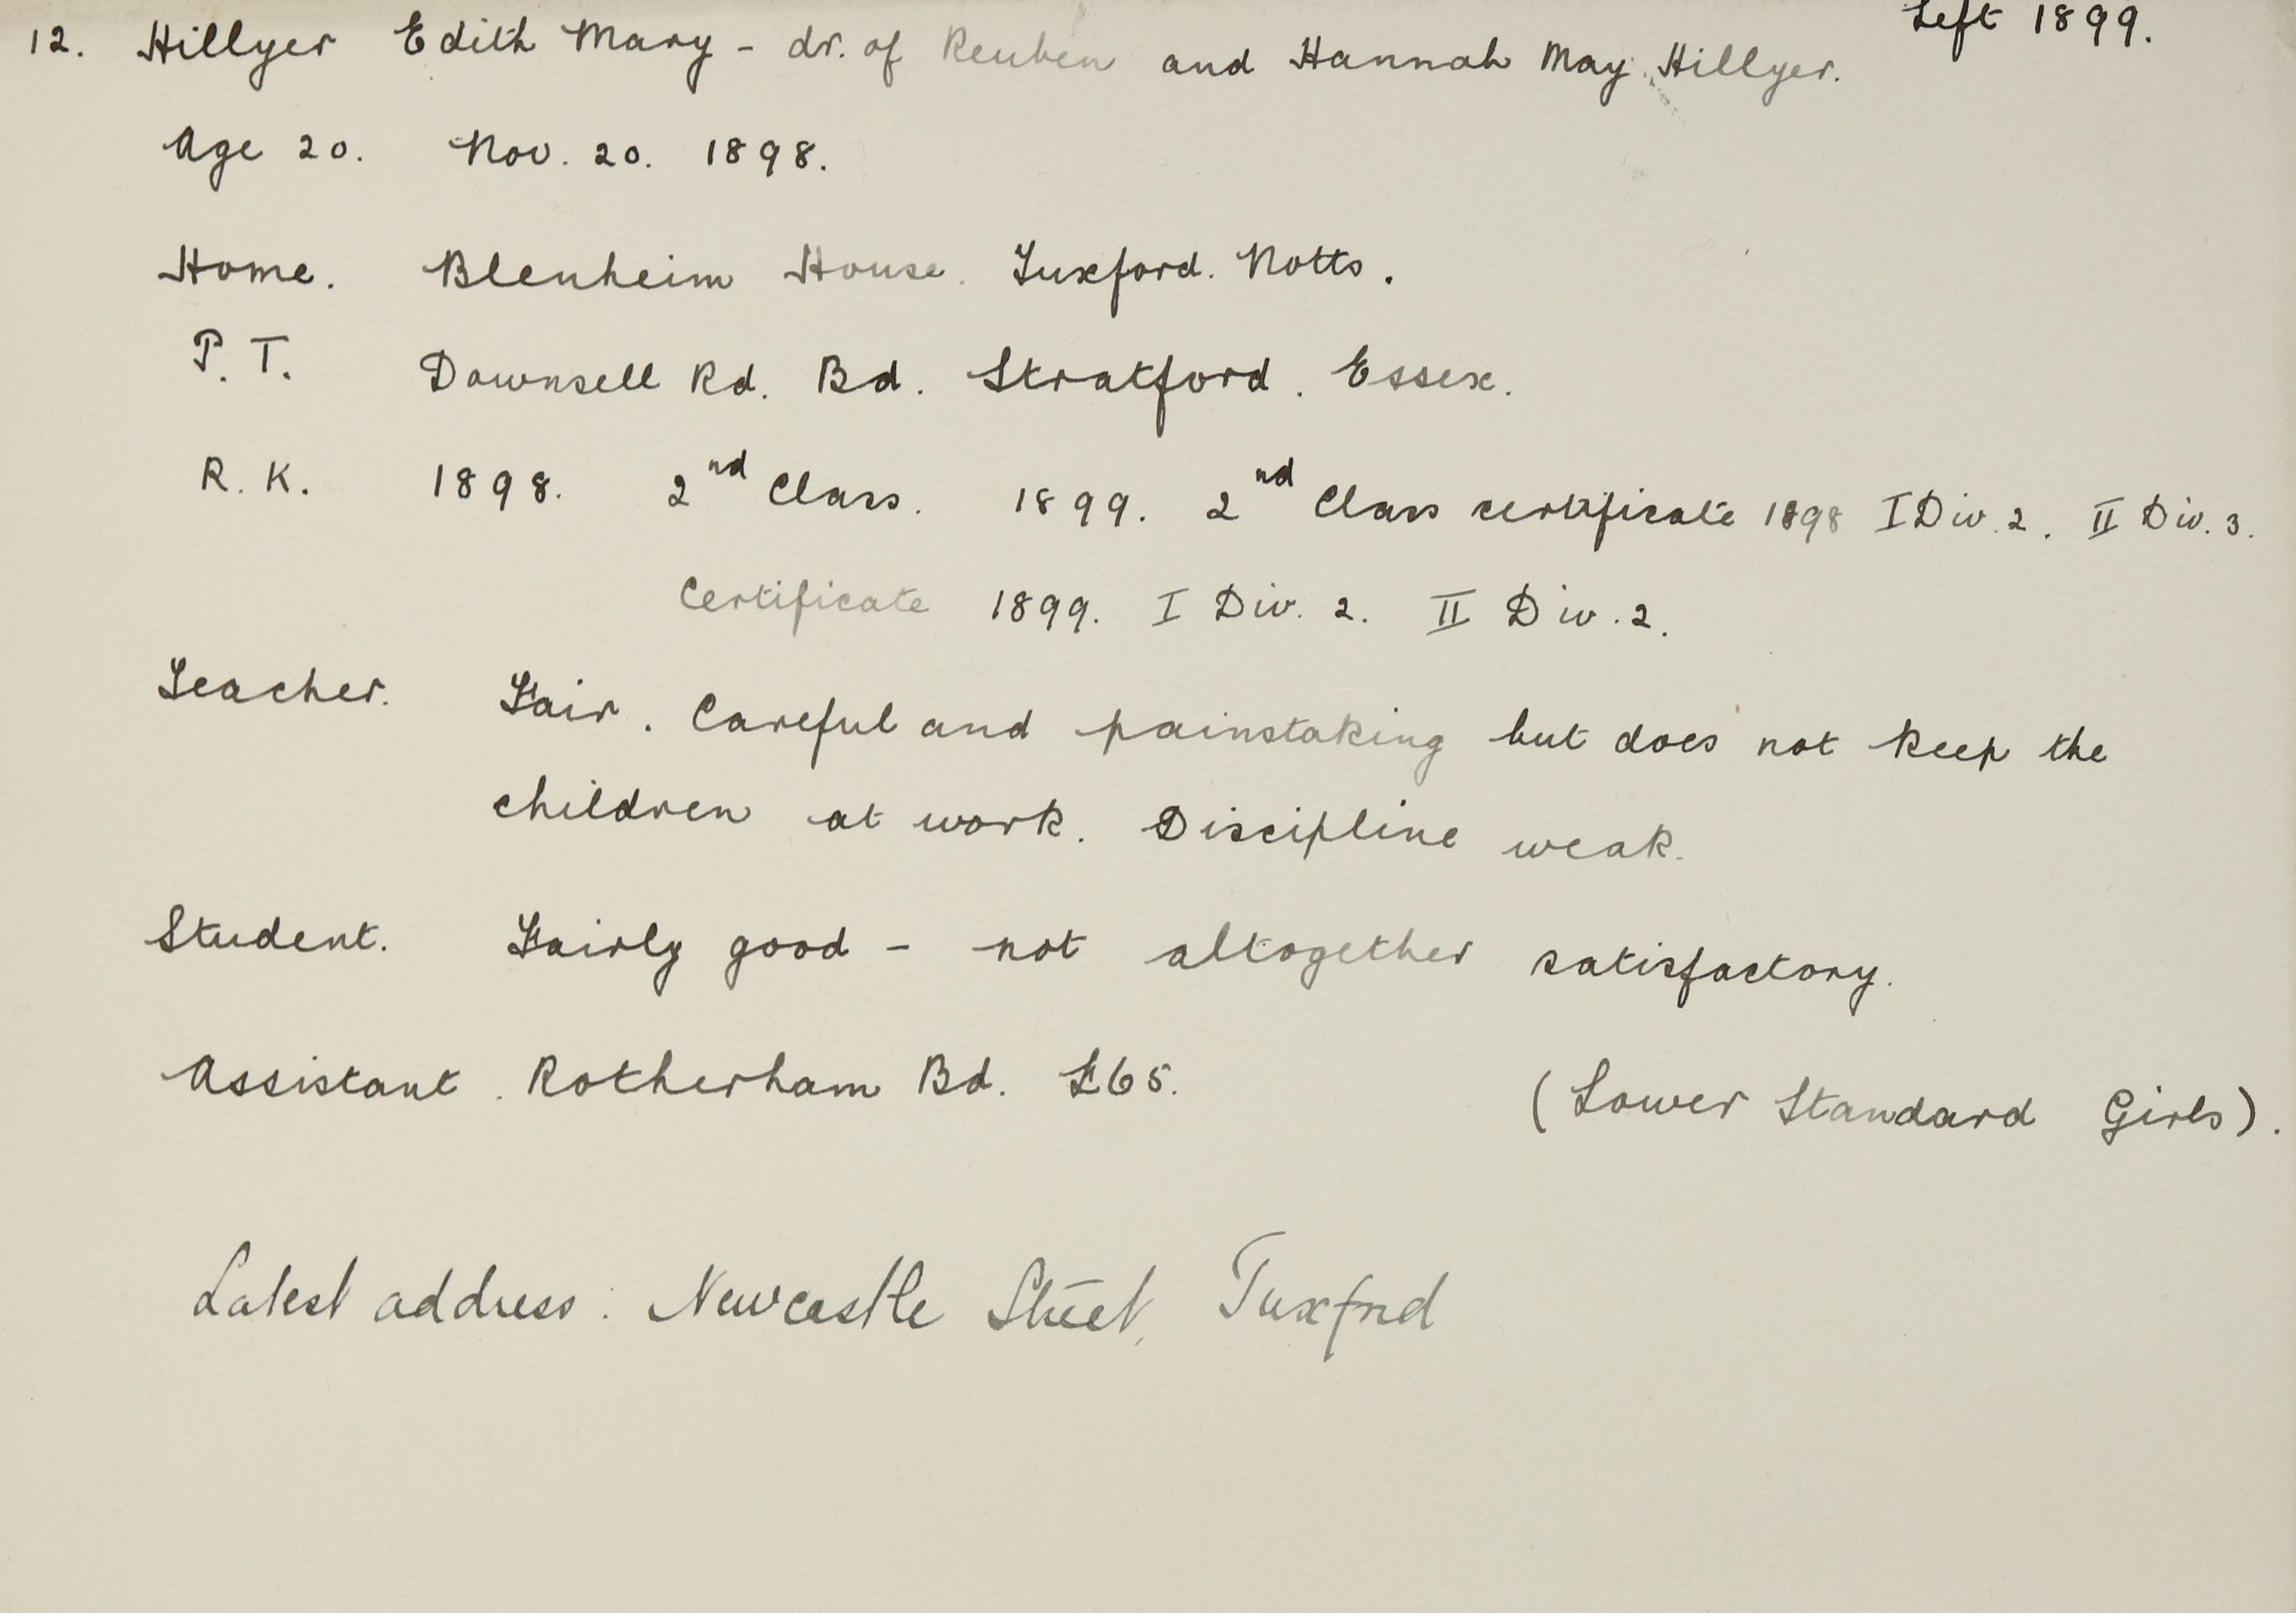 Left 1899.
12. Hillyer Edith Mary - dr. of Reuben and Hannah May Hillyer.
Age 20. Nov. 20. 1898.
Home. Blenheim House. Tuxford. Notts.
P. T. Downsell Rd. Bd. Stratford. Essex.
R. K. 1898. 2nd Class. 1899. 2nd Class certificate 1898 I Div. 2. II Div. 3.
Certificate 1899. I Div. 2. II Div. 2.
Teacher. Fair. Careful and painstaking but does not keep the
children at work. Discipline weak.
Student. Fairly good - not altogether satisfactory.
Assistant. Rotherham Bd. £65. (Lower Standard Girls).
Latest address: Newcastle Street, Tuxford